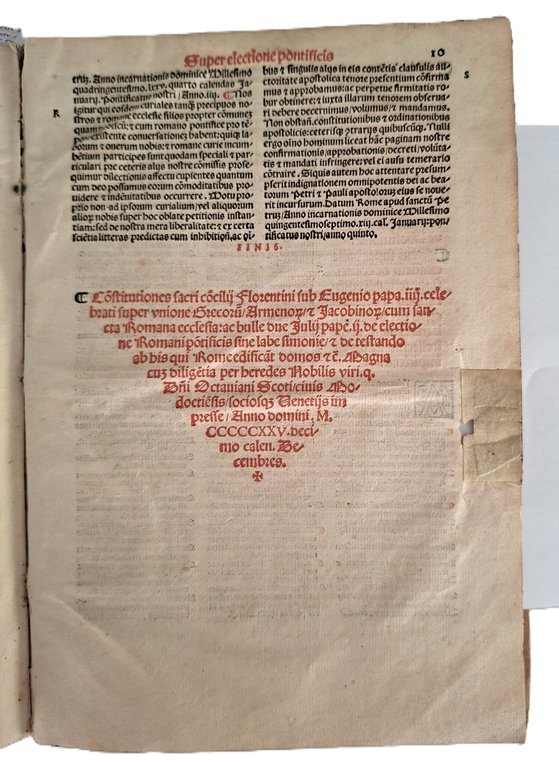 Super electione pontificis
10
tris. Anno incarnationis dominice Millesimo
quadringentesimo. lxxx. quarto calendas Ja-
nuarij. Pontificatus nostri / Anno. iiij. ¶ Nos
R
igitur qui eosdem curiales tanq̃ precipuos no-
stros ⁊ romane ecclesie filios propter cõmunez
existente conuersationes habent: quiq̃ la-
borum ⁊ onerum nobis: ⁊ romane curie incum-
bẽtium participes sunt quodam speciali ⁊ par-
ticulari pre ceteris alijs nostre cõmissis prose-
quimur dilectionis affectu cupientes quantum
cum deo possumus eorum cõmoditatibus pro-
uidere ⁊ indẽnitatibus occurrere. Motu pro-
prio non ad ipsorum curialium, vel aliquorum
alioꝝ nobis super hoc oblate petitionis instan-
tiam: sed de nostra mera liberalitate: ⁊ ex certa
sciẽtia litteras predictas cum inhibitiõn, ac oĩ-
bus ⁊ singulis alijs in eis contẽtis clausulis au-
ctoritate apostolica tenore presentium cõfirma
mus ⁊ approbamus: ac perpetue firmitatis ro-
S
bur obtinere: ⁊ iuxta illarum tenorem obserua-
ri debere decernimus, volumus, ⁊ mandamus.
Non obstañ. constitutionibus ⁊ ordinationibus
apostolicis: ceterisq̃ ꝯtrarijs quibuscũq̃. Nulli
ergo oĩno hominum liceat hãc paginam nostre
confirmationis, approbationis, decreti, volũta-
tis ⁊ mandati infringere: vel ei ausu temerario
cõtraire. Siquis autem hoc attentare presum-
pserit indignationem omnipotentis dei ac bea-
torum Petri ⁊ Pauli apostoloꝝ eius se noue-
rit incursurum. Datum Rome apud sanctũ Pe-
trũ, Anno incarnationis dominice Millesimo
quingentesimoseptimo. xiij. cal. Januarij: pon-
tificatus nostri, anno quinto.
FINIS.
¶ Cõstitutiones sacri cõcilij Florentini sub Eugenio papa. iiij. cele-
brati super vnione Grecorũ / Armenoꝝ / ⁊ Jacobinoꝝ / cum san-
cta Romana ecclesia: ac bulle due Julij papẽ. ij. de electio-
ne Romani põtificis sine labe simonie / ⁊ de testando
ab his qui Rome edificãt domos ⁊c̃. Magna
cuz diligẽtia per heredes Nobilis viri. q.
Dñi Octauiani Scoti / ciuis Mo-
doetiẽsis / sociosqꝫ Uenetijs im
presse / Anno domini, M.
CCCCCXXV. deci-
mo calen. De-
cembres.
✠